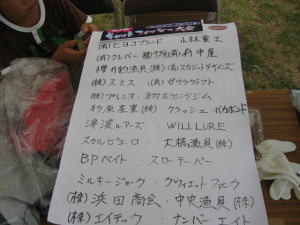 フィッシング大会
(有)ヒヨコブランド・小林重工
(有)クレバー・(株) 府中屋
櫻井釣漁具(株)・(有)スカジットデザインズ
(株)スミス・(有)ザウルスクラフト
(株)アルシオネ・
釣魚産業(株)・クラッシュ・バガボンド
津波ルアーズ・WILLLURE
スカルピューロ・大橋漁具(株)
BPベイト・スローテーパー
ミルキージョーク・クワイエットファンク
(株)浜田商会・中央漁具(株)
(株)エイテック・ナンバーエイト